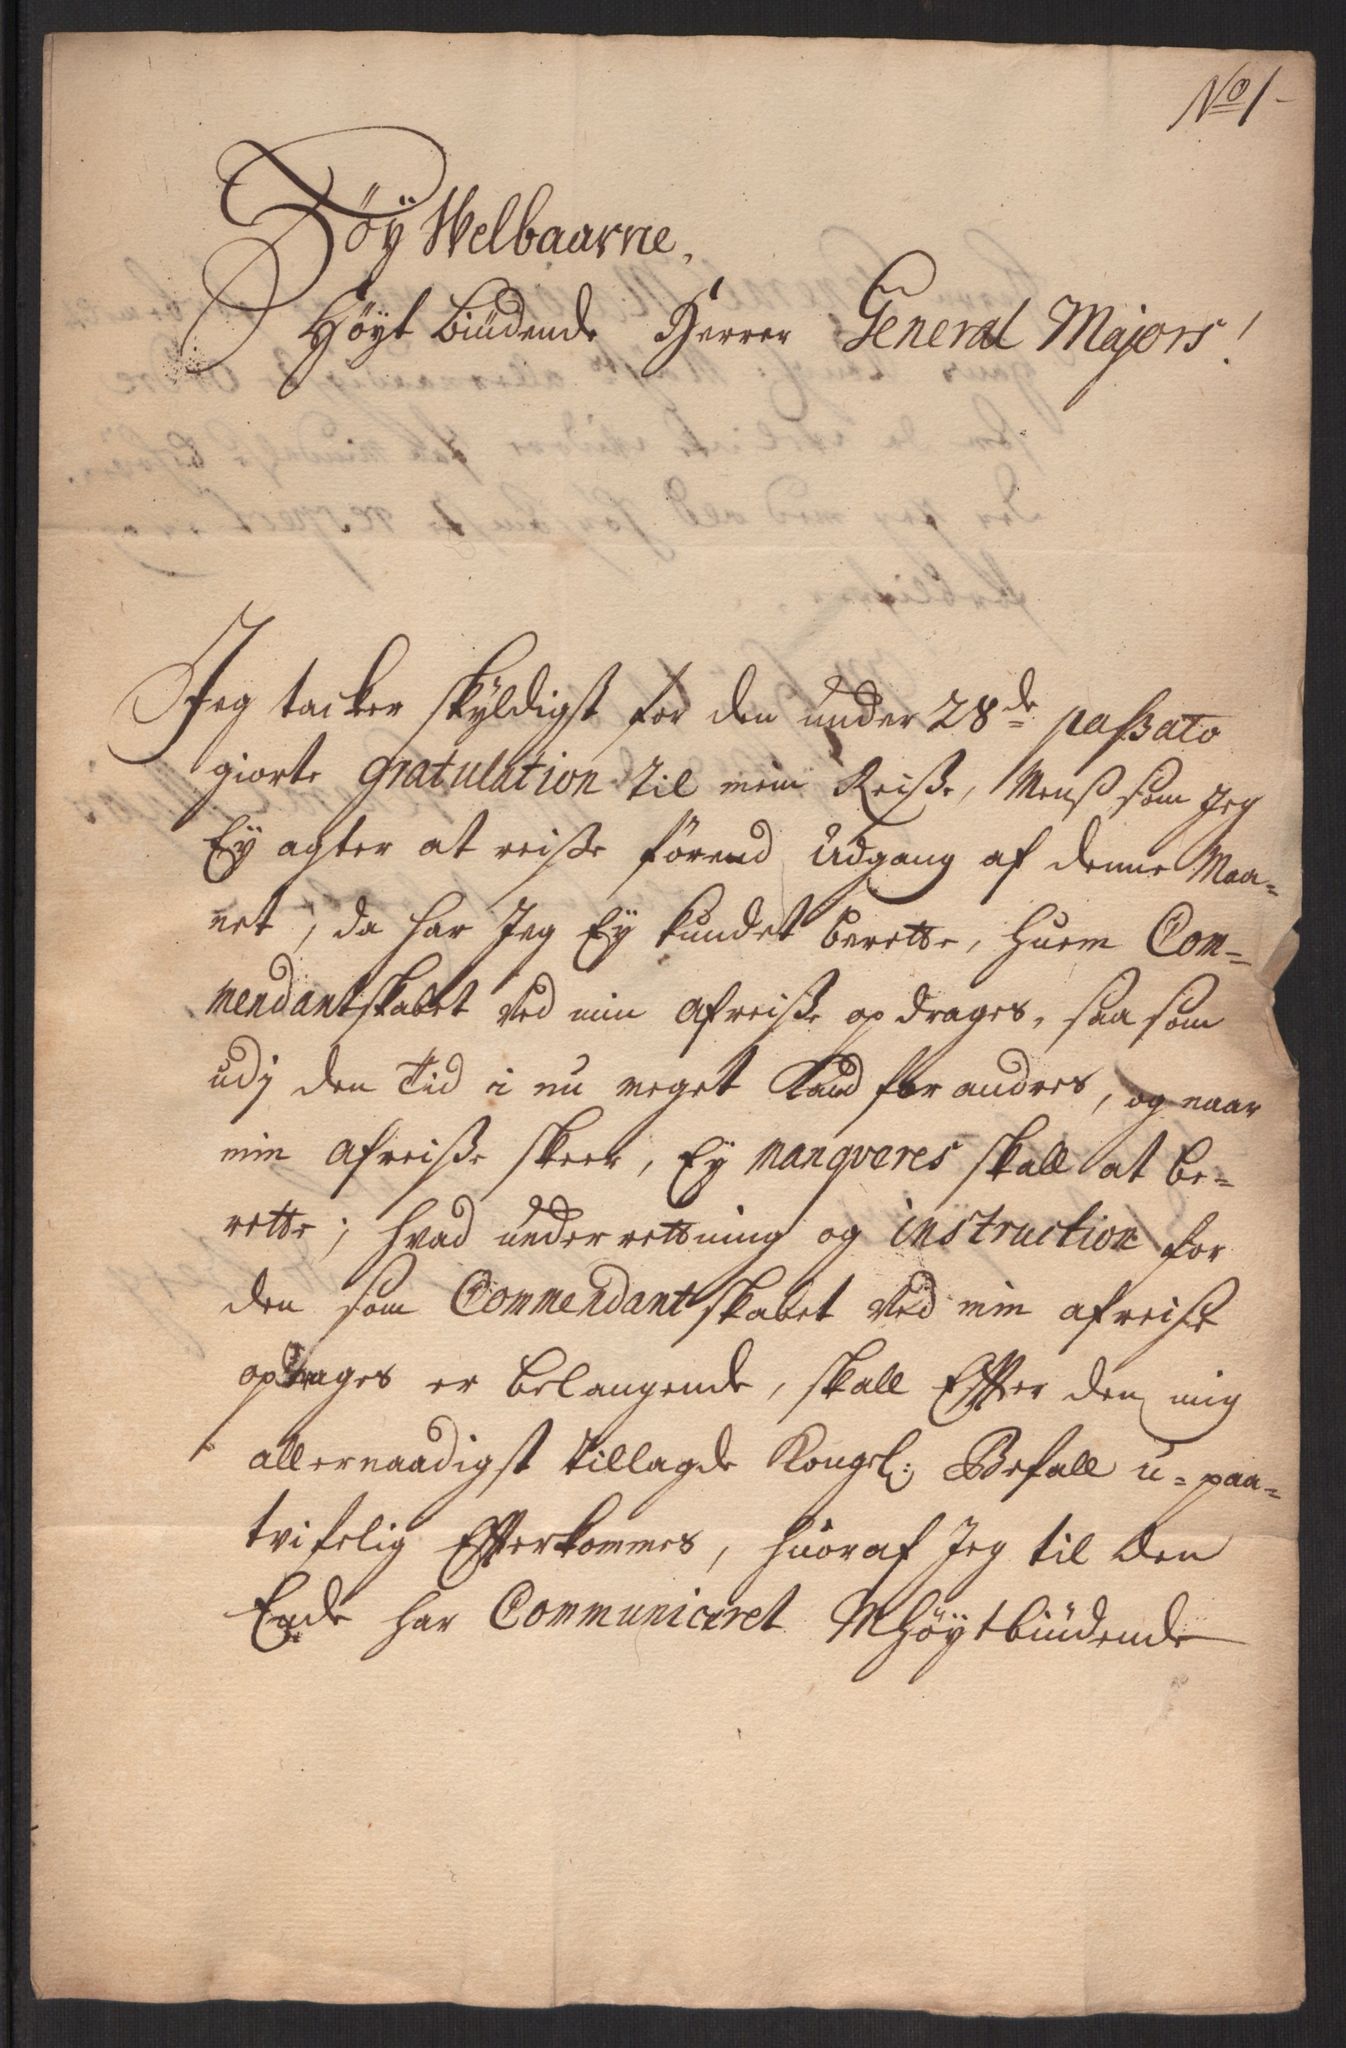 No 1-
Höÿ Welbaarne,
Höyt biüdende Herrer General Majors!
Jeg tacker skÿldigst for den under 28de passato
giorte gratulation til min Reiße, Menß som Jeg
Ey agter at reiße förend Udgang af denne Maa=
net, da har Jeg Ey kundet berette, huem Com=
mendantskabet ved min afreiße opdrages, saa som
udj den Tid i nu meget kand forandres, og naar
min afreiße skeer, Ey manqveres skall at be=
rette; hvad underrettning og instruction for
den som Commendantskabet ved min afreiße
opdrages er belangende, skall Effter den mig
allernaadigst tillagde Kongel: Befall u=paa=
tvifelig Effterkommes, huoraf Jeg til den
Ende har Communiceret MHöÿtbiüdende